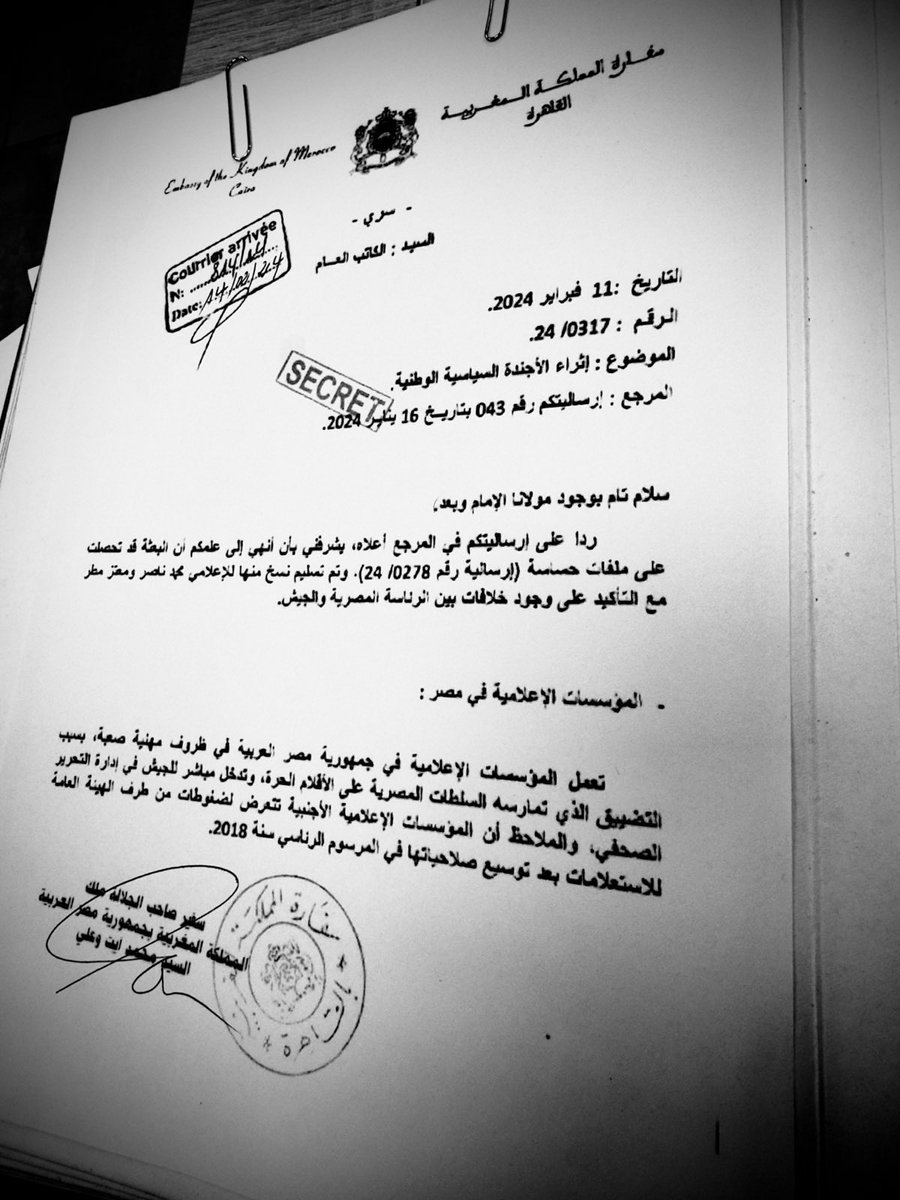 سفارة المملكة المغربية
القاهرة
Embassy of the Kingdom of Morocco
Cairo
- سري -
السيد : الكاتب العام
Courrier arrivée
N:
Date:
التاريخ :11 فبراير 2024.
الرقم : 0317/ 24.
الموضوع : إثراء الأجندة السياسية الوطنية.
SECRET
المرجع : إرساليتكم رقم 043 بتاريخ 16 يناير 2024.
سلام تام بوجود مولانا الإمام وبعد،
ردا على إرساليتكم في المرجع أعلاه، يشرفني بأن أنهي إلى علمكم أن البعثة قد تحصلت
على ملفات حساسة (إرسالية رقم 0278/ 24). وتم تسليم نسخ منها للإعلامي محمد ناصر ومعتز مطر
مع التأكيد على وجود خلافات بين الرئاسة المصرية والجيش.
- المؤسسات الإعلامية في مصر :
تعمل المؤسسات الإعلامية في جمهورية مصر العربية في ظروف مهنية صعبة، بسبب
التضييق الذي تمارسه السلطات المصرية على الأقلام الحرة، وتدخل مباشر للجيش في إدارة التحرير
الصحفي، والملاحظ أن المؤسسات الإعلامية الأجنبية تتعرض لضغوطات من طرف الهيئة العامة
للاستعلامات بعد توسيع صلاحياتها في المرسوم الرئاسي سنة 2018.
سفير صاحب الجلالة ملك
المملكة المغربية بجمهورية مصر العربية
السيد محمد ايت وعلي
سفارة المملكة
بالقاهرة